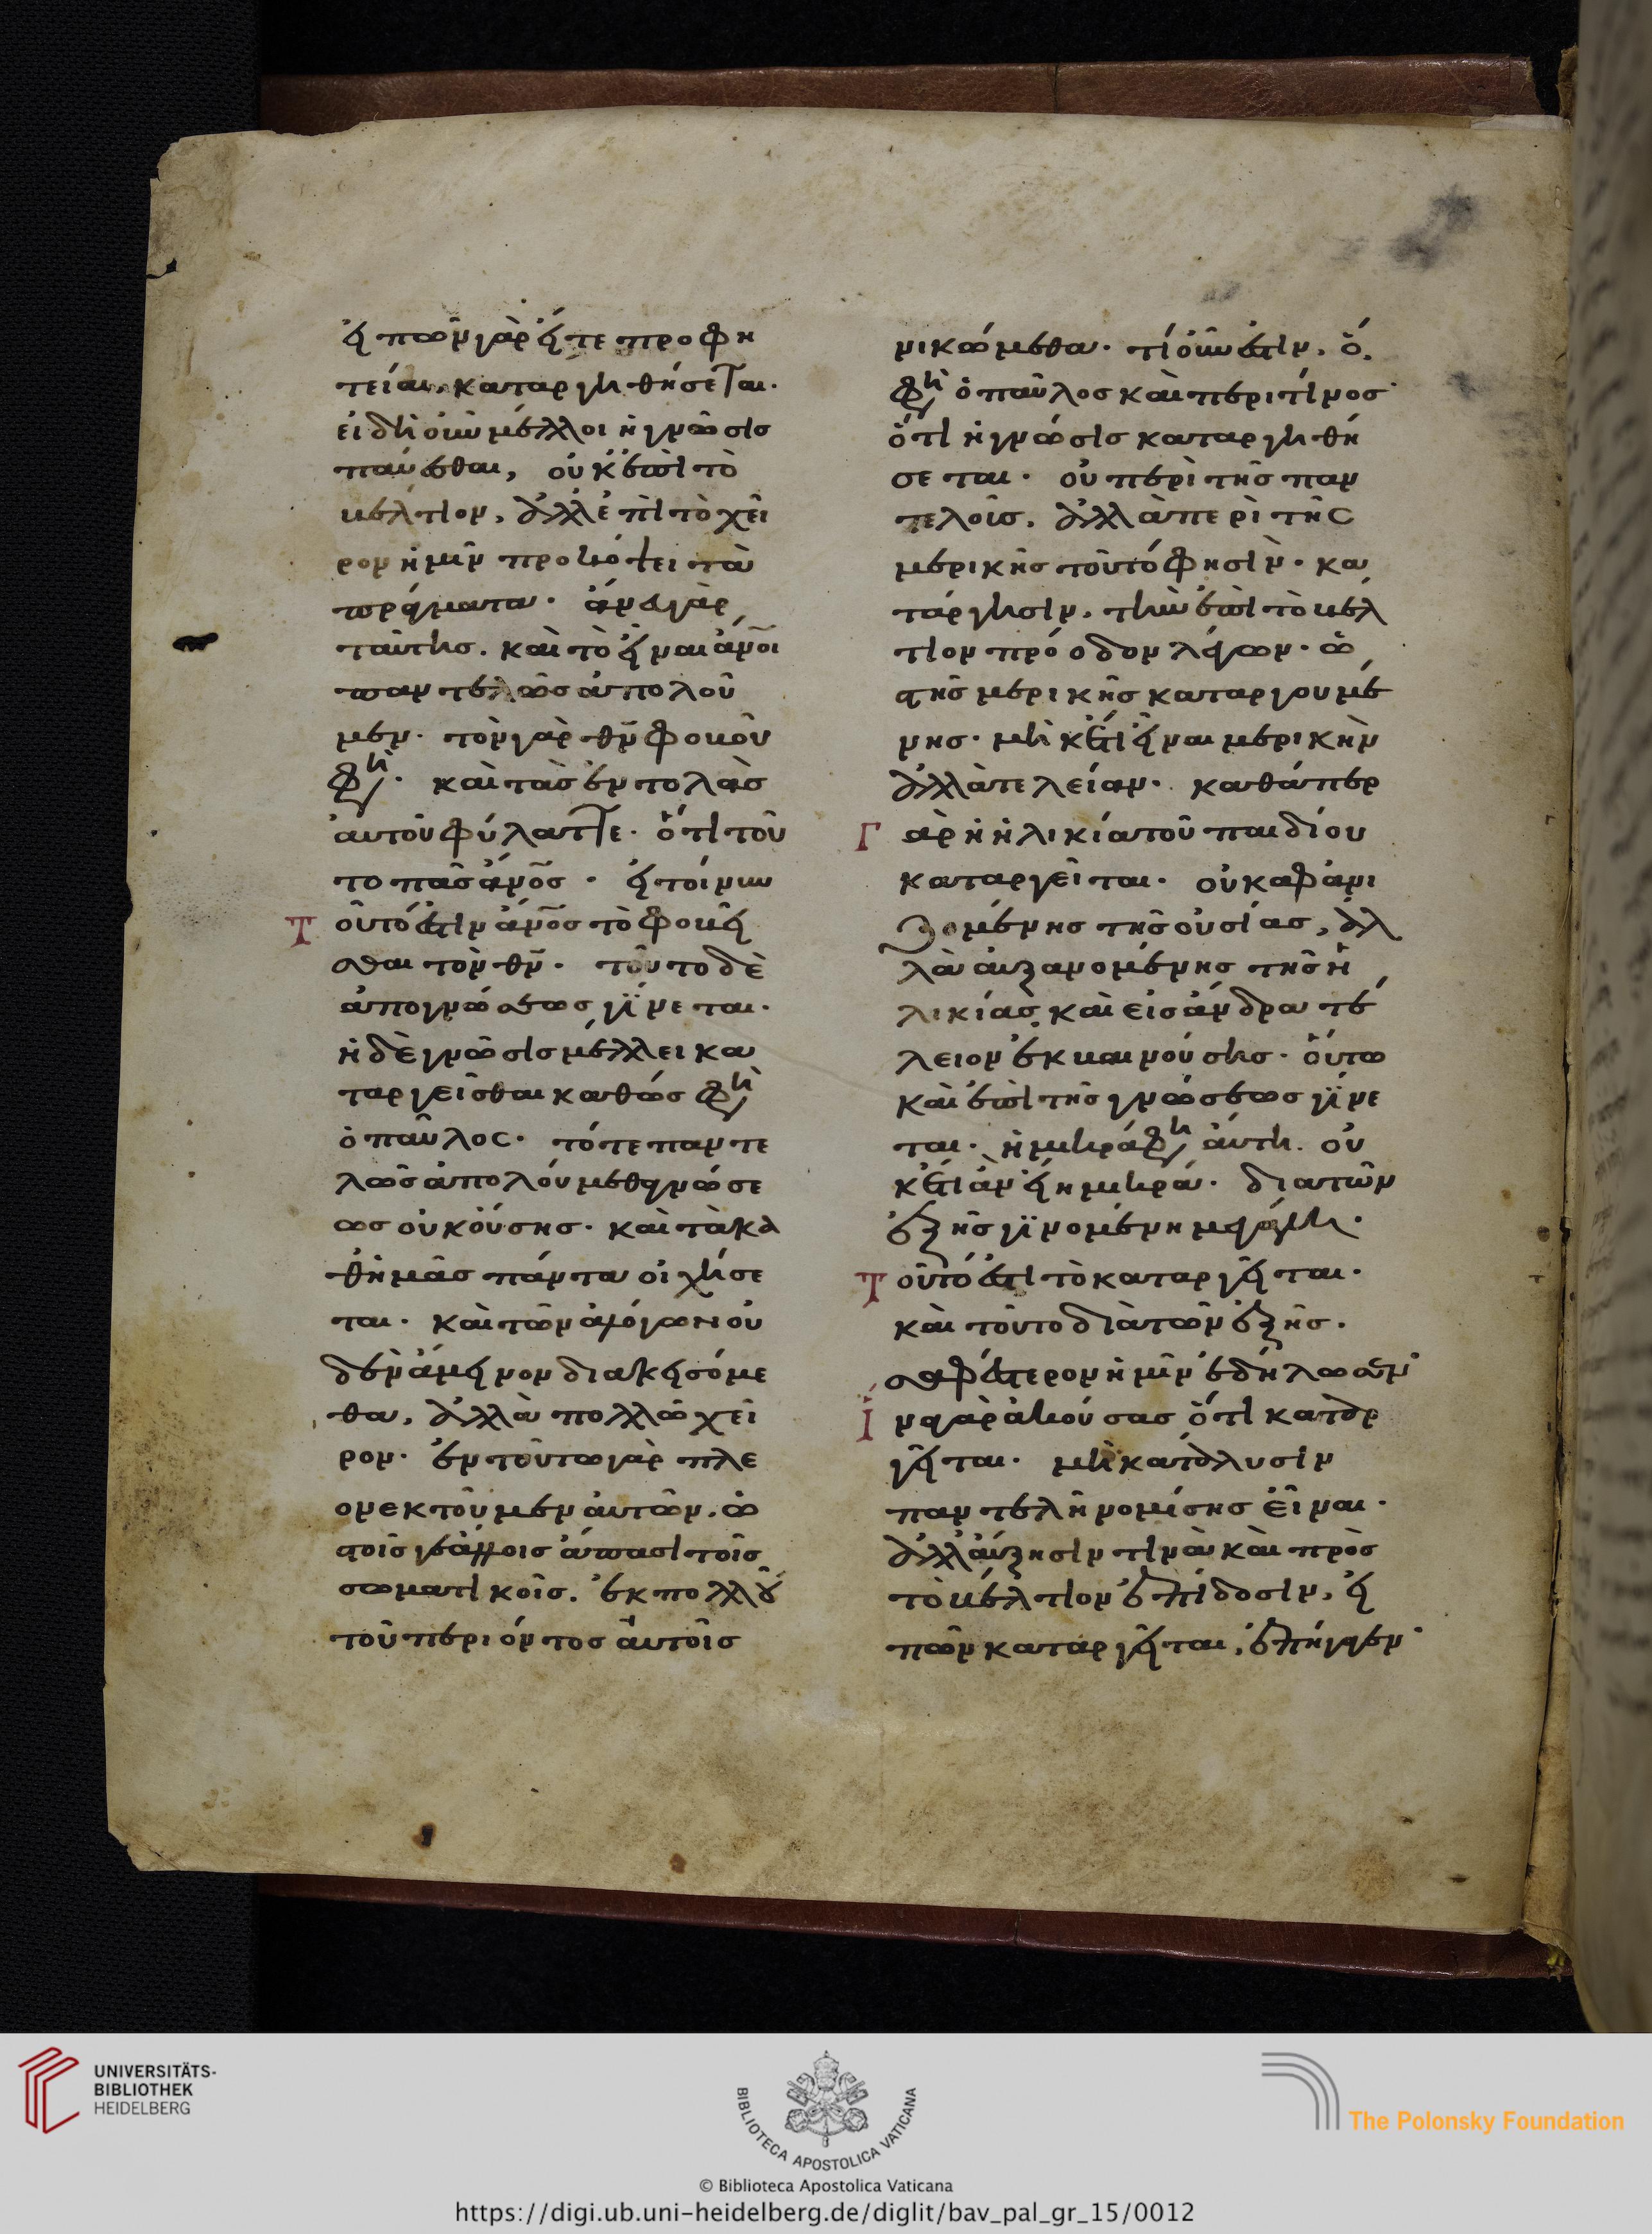 εἰπὼν γὰρ εἴτε προφη
τείαι, καταργηθήσεται.
εἰ δὴ οὖν μέλλοι ἡ γνῶσις
παύεσθαι, οὐκ ἐπὶ τὸ
βέλτιον, ἀλλ' ἐπὶ τὸ χεῖ
ρον ἡμῖν προκόπτει τὰ
πράγματα· ἄνευ γὰρ
ταύτης, καὶ τὸ εἶναι ἄνοι
παντελῶς ἀπολοῦ
μεν· τὸν γὰρ θν φοβοῦ
φη· καὶ τὰς ἐντολὰς
αὐτοῦ φύλαττε· ὅτι τοῦ
το πᾶς ἄνος· εἰ τοίνυν
τοῦτό ἐστιν ἄνος τὸ φοβεῖ
σθαι τὸν θν· τοῦτο δὲ
ἀπὸ γνώσεως γίνεται·
ἡ δὲ γνῶσις μέλλει κα
ταργεῖσθαι καθώς φη
ὁ παῦλος· τότε παντε
λῶς ἀπολούμεθα γνώσε
ως οὐκ οὔσης· καὶ τὰ κα
θ' ἡμᾶς πάντα οἰχήσε
ται· καὶ τῶν ἀλόγων οὐ
δὲν ἄμεινον διακεισόμε
θα, ἀλλὰ πολλῷ χεῖ
ρον· ἐν τούτω γὰρ πλε
ονεκτοῦμεν αὐτῶν· ὡ
ς τοῖς γε ἄλλοις ἅπασι τοῖς
σωματικοῖς, ἐκ πολλοῦ
τοῦ περιόντος αὐτοῖς
νικώμεθα· τί οὖν ἐστιν, ὅ
φη ὁ παῦλος καὶ περὶ τίνος
ὅτι ἡ γνῶσις καταργηθή
σεται· οὐ περὶ τῆς παν
τελοῦς, ἀλλὰ περὶ τῆς
μερικῆς τοῦτό φησιν· κα
τάργησιν, τὴν ἐπὶ τὸ βέλ
τιον πρόοδον λέγων· ὡ
ς τῆς μερικῆς καταργουμέ
νης· μὴ κέτι εἶναι μερικὴν
ἀλλὰ τελείαν· καθάπερ
Γὰρ ἡ ἡλικία τοῦ παιδίου
καταργεῖται· οὐκ ἀφανι
ζομένης τῆς οὐσίας, ἀλ
λὰ αὐξανομένης τῆς ἡ
λικίας καὶ εἰς ἄνδρα τέ
λειον ἐκβαινούσης· οὕτω
καὶ ἐπὶ τῆς γνώσεως γίνε
ται· ἡ μικρά φη αὕτη οὐ
κέτι ἂν εἴη μικρά· διὰ τῶν
ἑξῆς γινομένη μεγάλη·
Τοῦτό ἐστι τὸ καταργεῖται·
καὶ τοῦτο διὰ τῶν ἑξῆς·
σαφέστερον ἡμῖν ἐδήλωσεν·
ἵνα γὰρ ἀκούσας ὅτι καταρ
γεῖται· μὴ κατάλυσιν
παντελῆ νομίσης εἶναι·
ἀλλ' αὔξησίν τινα καὶ πρὸς
τὸ βέλτιον ἐπίδοσιν, εἰ
πὼν καταργεῖται, ἐπήγαγεν·
UNIVERSITÄTS-
BIBLIOTHEK
HEIDELBERG
BIBLIOTECA APOSTOLICA VATICANA
The Polonsky Foundation
© Biblioteca Apostolica Vaticana
https://digi.ub.uni-heidelberg.de/diglit/bav_pal_gr_15/0012